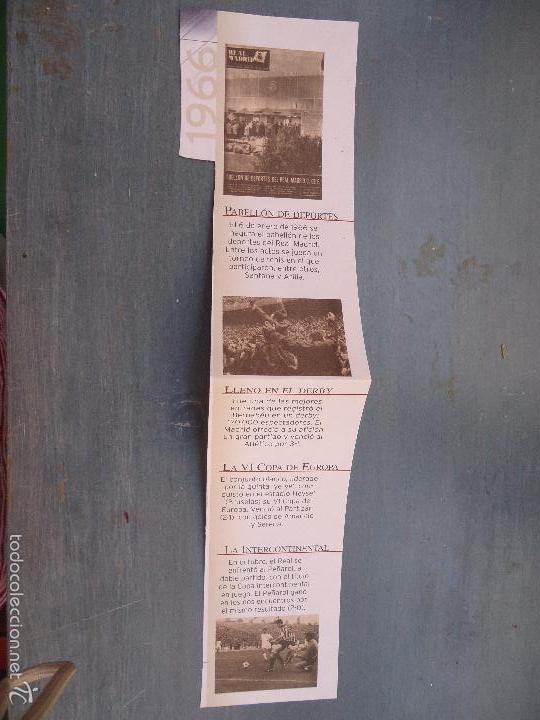 1966
REAL
MADRID
PABELLÓN DE DEPORTES DEL REAL MADRID C. DE F.
PABELLÓN DE DEPORTES
El 6 de enero de 1966 se
inauguró el pabellón de los
deportes del Real Madrid.
Entre los actos se jugó un
torneo de tenis en el que
participaron, entre otros,
Santana y Arilla.
LLENO EN EL DERBY
Fue una de las mejores
entradas que registró el
Bernabéu en un derby:
120.000 espectadores. El
Madrid ofreció a su afición
un gran partido y venció al
Atlético por 3-1.
LA VI COPA DE EUROPA
El conjunto blanco, liderado
por la quinta 'ye-yé', con-
quistó en el estadio Heysel
(Bruselas) su VI Copa de
Europa. Venció al Partizan
(2-1), con goles de Amancio
y Serena.
LA INTERCONTINENTAL
En octubre, el Real se
enfrentó al Peñarol, a
doble partido, con el título
de la Copa Intercontinental
en juego. El Peñarol ganó
en los dos encuentros por
el mismo resultado (2-0).
todocoleccion.net